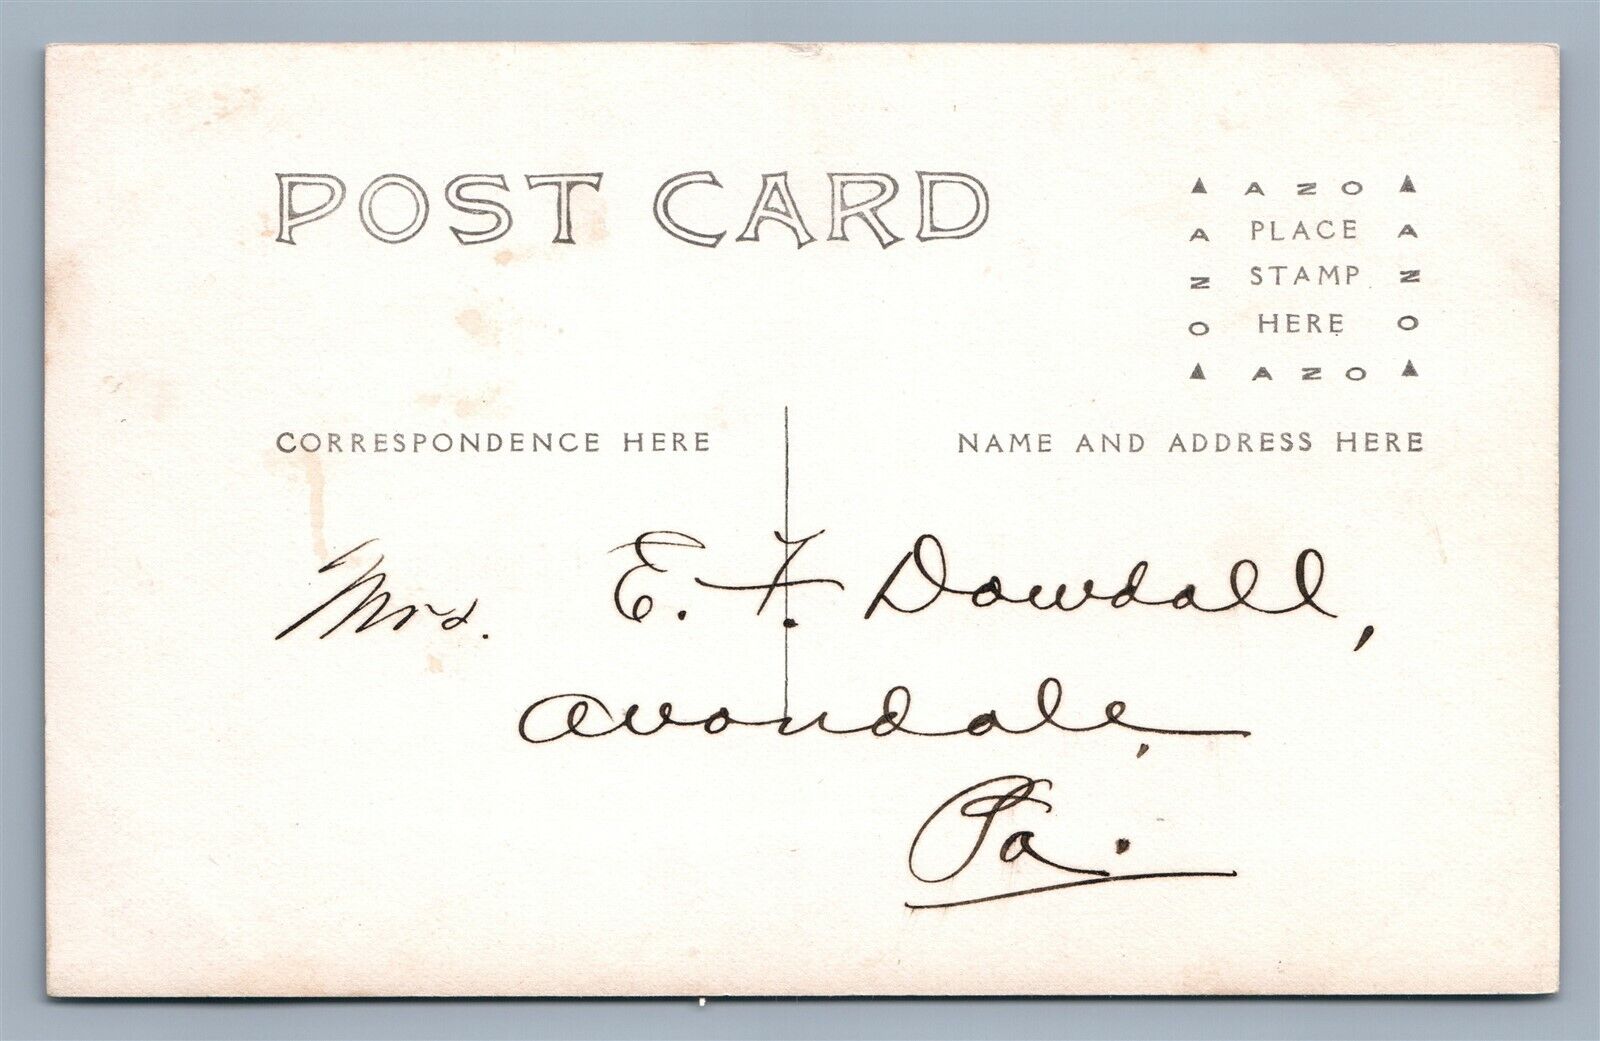 POST CARD
▲ AZO ▲
A PLACE A
N STAMP N
O HERE O
▲ AZO ▲
CORRESPONDENCE HERE
NAME AND ADDRESS HERE
Mrs. E. F. Dowdall,
Avondale,
Pa.